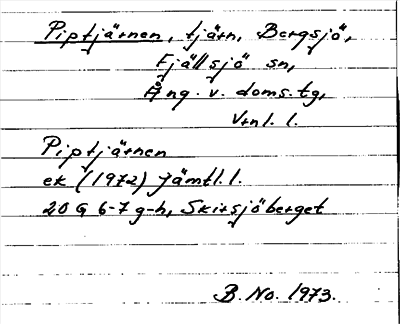 Piptjärnen, tjärn, Bergsjö,
Fjällsjö sn,
Ång. v. doms.tg,
Vrnl. l.
Piptjärnen
ek (1972) Jämtl. l.
20 G 6-7 g-h, Skirsjöberget
B. No. 1973.